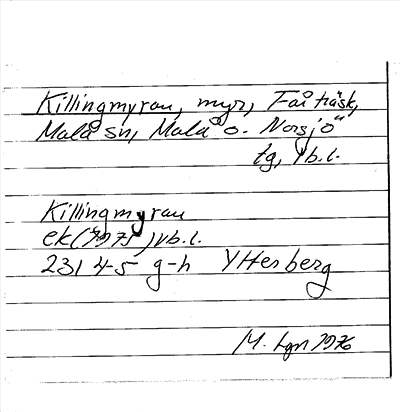 Killingmyran, myr, Fårträsk,
Malå sn, Malå o. Norsjö
tg, Vb.l.
Killingmyran
ek (1975) Vb.l.
231 4-5 g-h Ytterberg
M. 1976